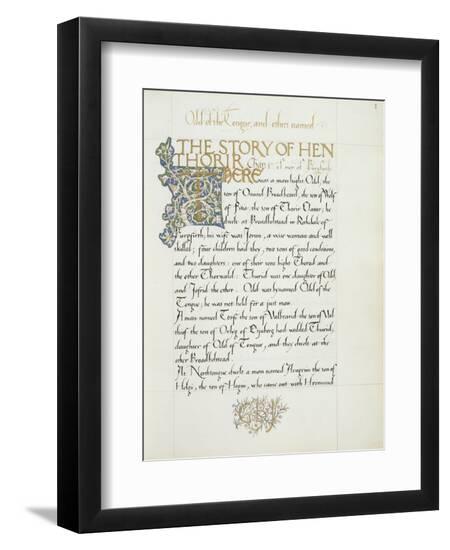 Odd of the Tongue, and others named
1
THE STORY OF HEN
THORIR Chap: 1. Of men of Burgfirth
THERE
was a man hight Odd, the
son of Onund Broadbeard, the son of Wolf
of Fitia, the son of Thorir Clamer; he
dwelt at Broadlidstead in Rekdale of
Burgfirth; his wife was Jorun, a wise woman and well
skilled; four children had they, two sons of good conditions
and two daughters: one of their sons hight Thorod and
the other Thorwald: Thurid was one daughter of Odd
and Jofrid the other. Odd was bynamed Odd of the
Tongue; he was not held for a just man.
A man named Torfi the son of Valbrand, the son of Val
thiof the son of Orlyg of Esjuberg had wedded Thurid,
daughter of Odd of Tongue, and they dwelt at the
other Broadlidstead.
At Northtongue dwelt a man named Arngrim the son of
Helgi, the son of Hogni, who came out with Hromund